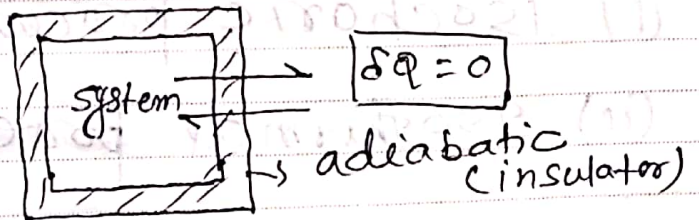 system
δQ = 0
adiabatic
(insulator)